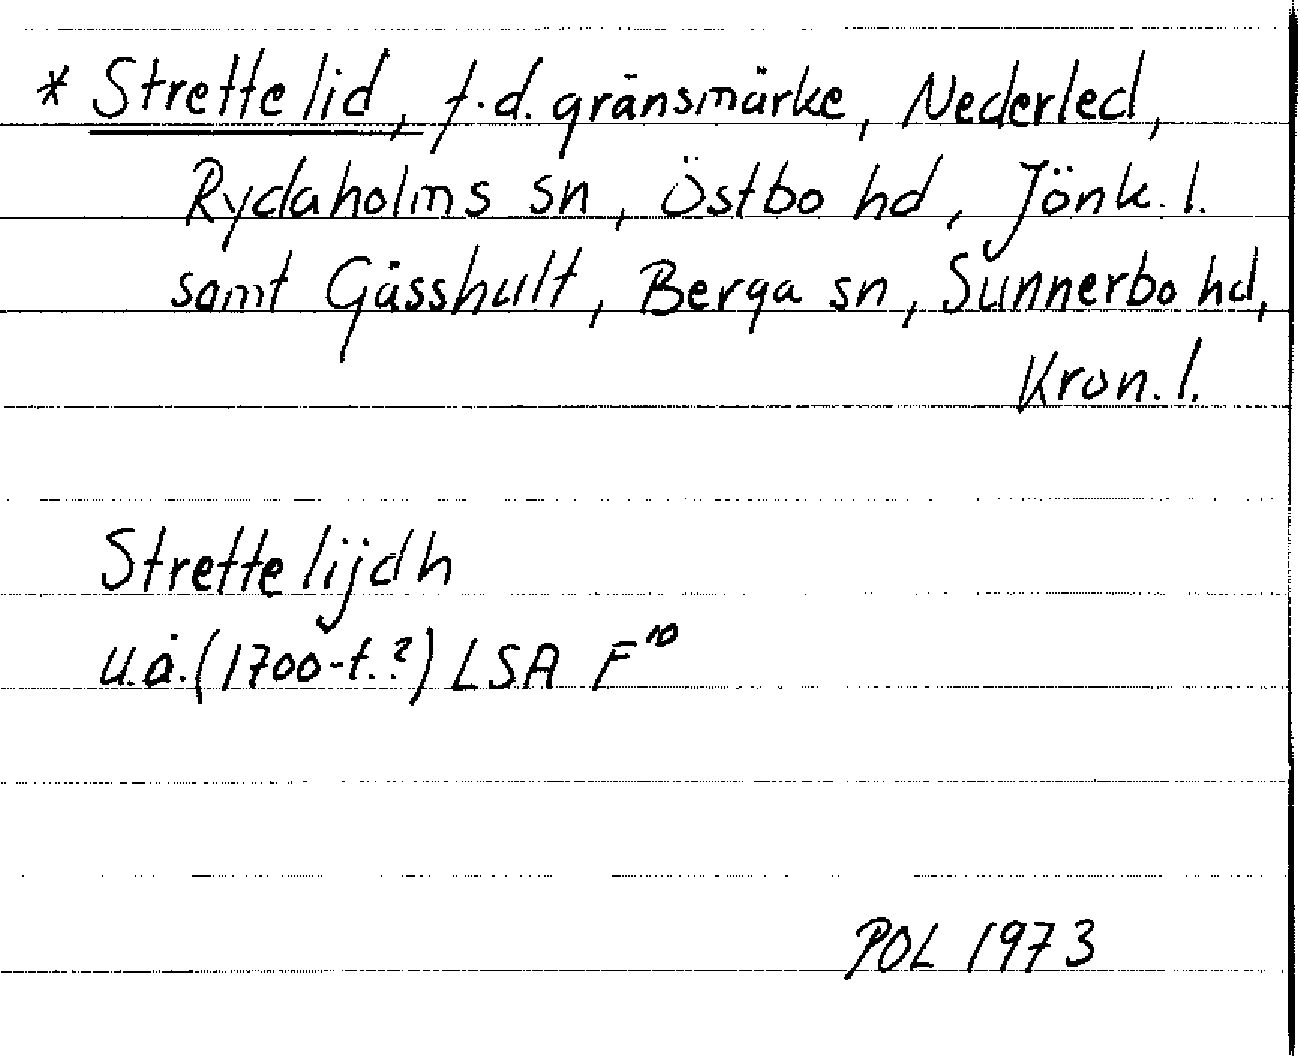 * Strette lid, f.d. gränsmärke, Nederled,
Rydaholms sn, Östbo hd, Jönk. l.
samt Gåsshult, Berga sn, Sunnerbo hd,
Kron. l.
Strette lijdh
u.å. (1700-t.?) LSA F10
POL 1973